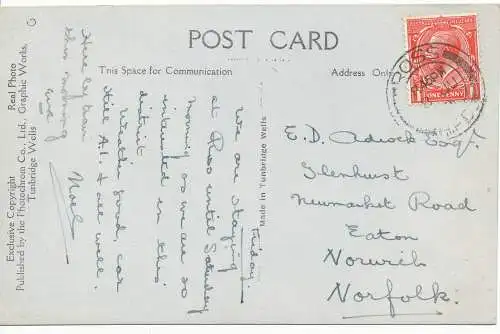 POST CARD
This Space for Communication
Address Only
Exclusive Copyright
Published by the Photochrom Co., Ltd., Graphic Works,
Tunbridge Wells
Real Photo
Made in Tunbridge Wells
ROSS
ONE PENNY
Friday.
We are staying
at Ross until Saturday
morning as we are so
interested in this
district.
Weather good, car
still A.1. & all well.
Noel
this morning
E.D. Adcock Esqr.
Glenhurst
Newmarket Road
Eaton
Norwich
Norfolk.